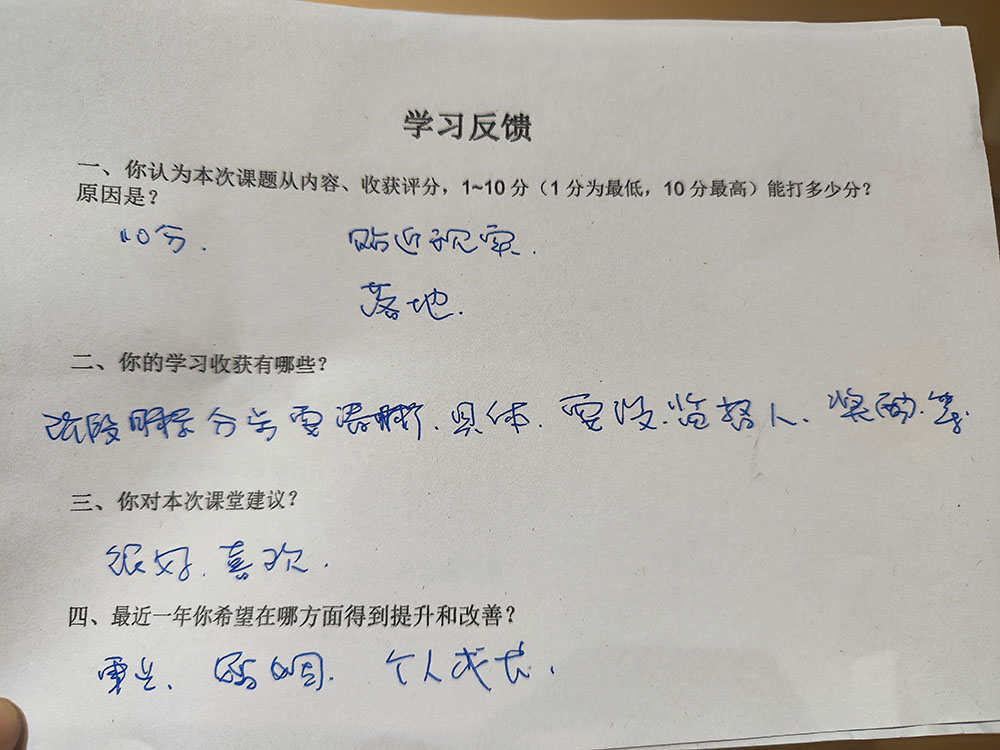 学习反馈
一、你认为本次课题从内容、收获评分，1~10 分（1 分为最低，10 分最高）能打多少分？
原因是？
10分. 贴近现实.
落地.
二、你的学习收获有哪些？
分 要清晰. 具体. 要设. 监督人. 奖 等
三、你对本次课堂建议？
很好. 喜欢.
四、最近一年你希望在哪方面得到提升和改善？
事业. 婚姻. 个人成长.